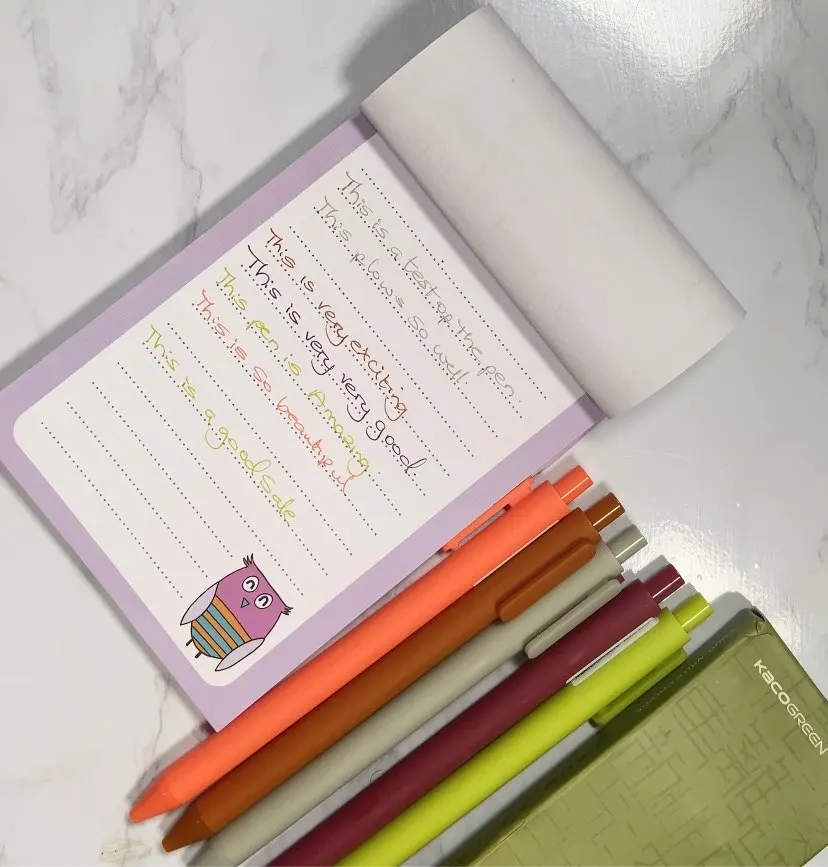 This is a test of the pen.
This plows so well.
This is very exciting
This is very very good
This pen is Amazing
This is So beautiful
This is a good Sale
KACOGREEN